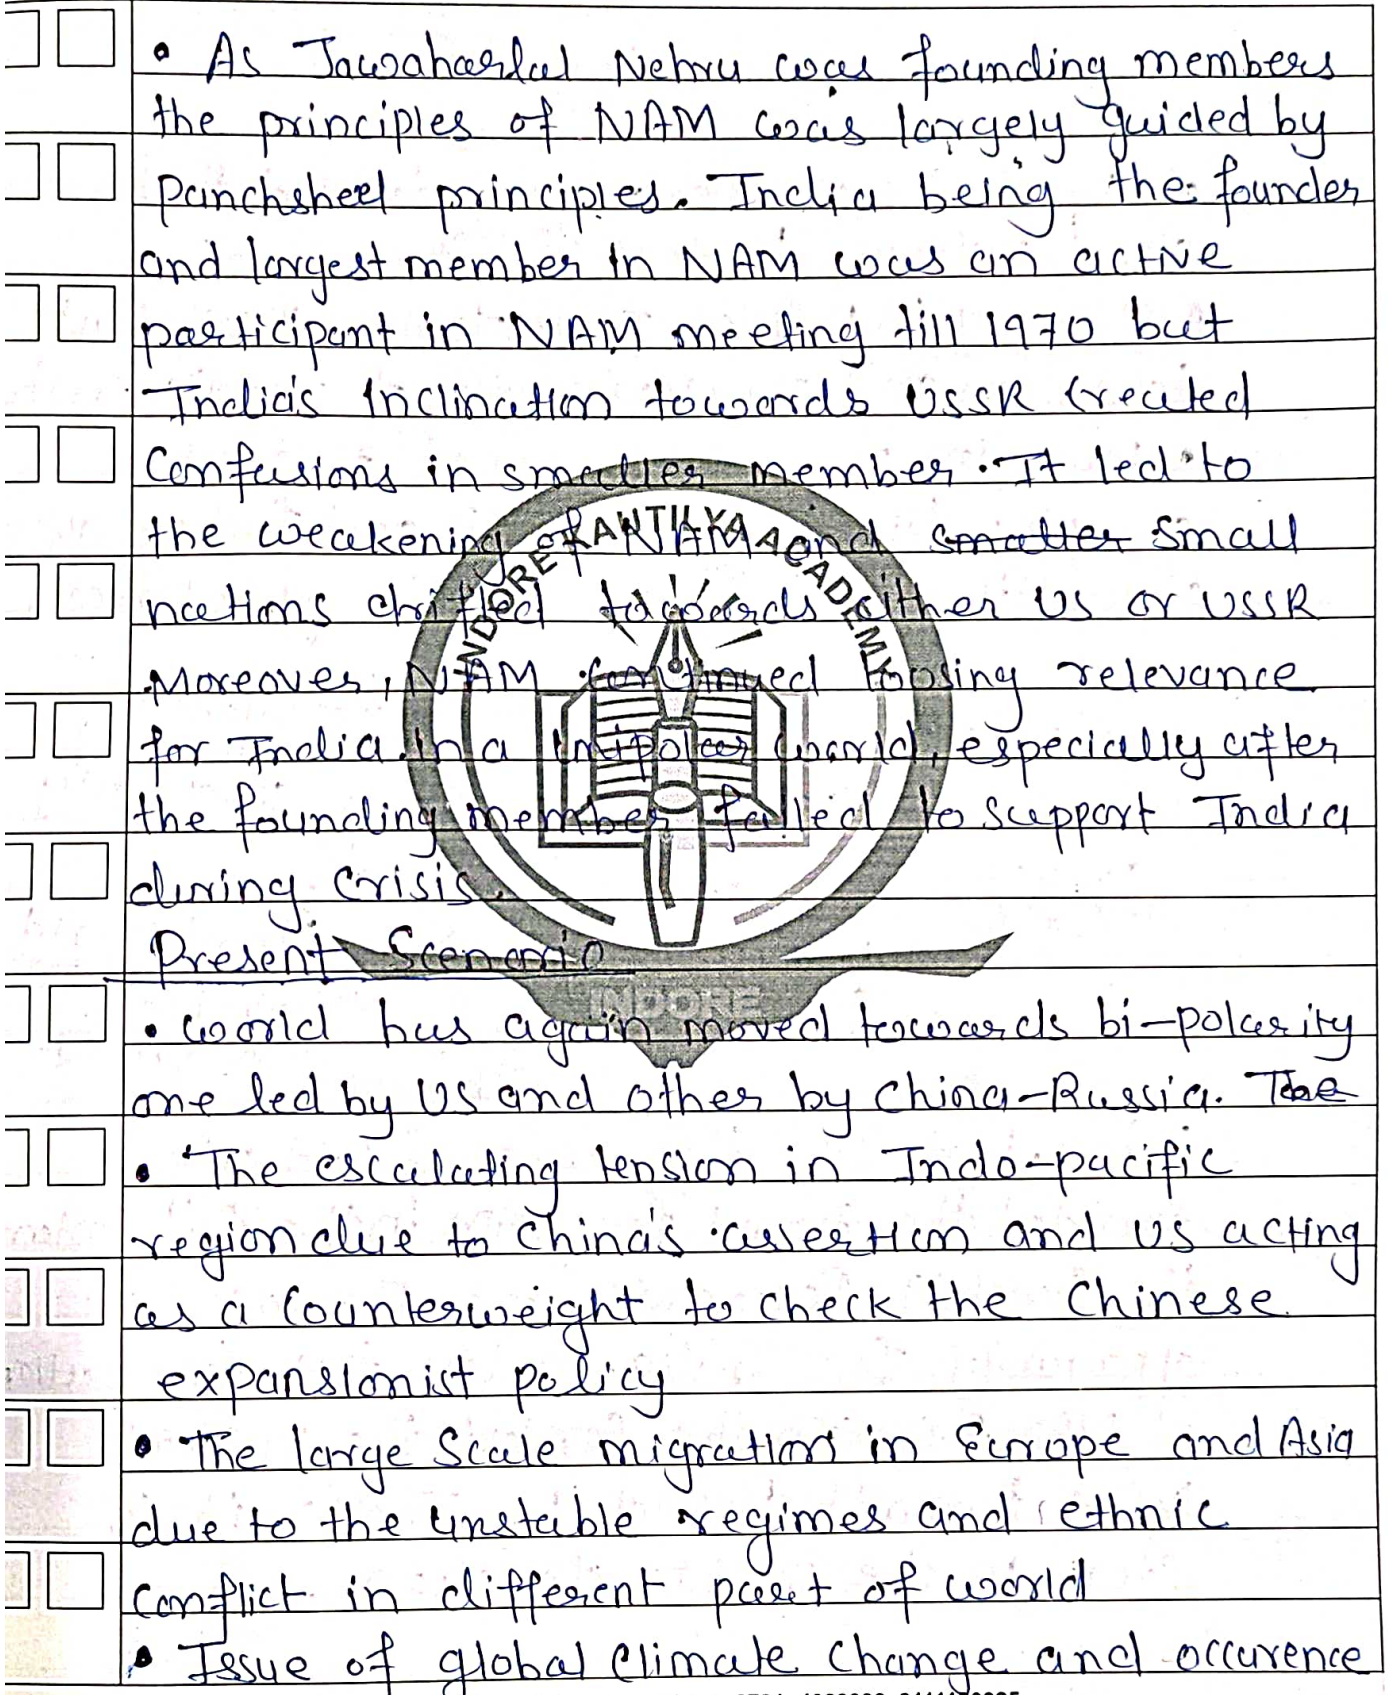 • As Jawaharlal Nehru was founding members
the principles of NAM was largely guided by
Panchsheel principles. India being the founder
and largest member in NAM was an active
participant in NAM meeting till 1970 but
India's inclination towards USSR created
Confusions in smaller member. It led to
the weakening of NAM and smaller small
nations drifted towards either US or USSR
Moreover, NAM continued loosing relevance
for India in a unipolar world, especially after
the founding member failed to support India
during crisis.
Present Scenario
• World has again moved towards bi-polarity
one led by US and other by China-Russia. The
• The escalating tension in Indo-pacific
region due to China's assertion and US acting
as a Counterweight to check the Chinese
expansionist policy
• The large Scale migration in Europe and Asia
due to the unstable regimes and ethnic
conflict in different part of world
• Issue of global Climate Change and occurence
INDORE KAUTILYA ACADEMY
INDORE